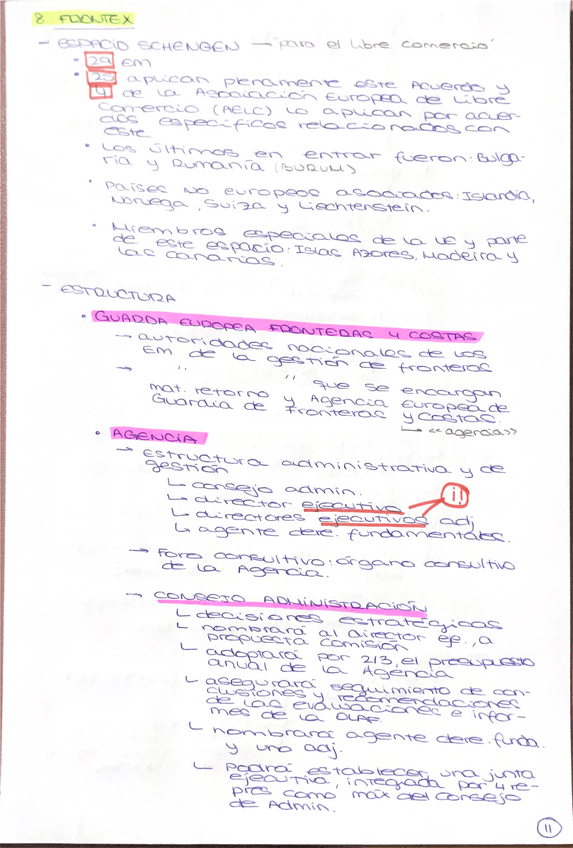 8 FRONTEX
- ESPACIO SCHENGEN → "para el libre comercio"
• 29 EM
• 25 aplican plenamente este Acuerdo y
4 de la Asociación Europea de Libre
Comercio (AELC) lo aplican por acuer-
dos específicos relacionados con
este
• Los últimos en entrar fueron: Bulga-
ria y Rumanía (BURUM)
• Países No europeos asociados: Islandia,
Noruega, Suiza y Liechtenstein.
• Miembros especiales de la UE y parte
de este espacio: Islas Azores, Madeira y
las Canarias.
- ESTRUCTURA
• GUARDA EUROPEA FRONTERAS Y COSTAS
→ autoridades nacionales de los
EM de la gestión de fronteras
→ " " que se encargan
mat. retorno y Agencia Europea de
Guardia de Fronteras y Costas.
↳ «agencia»
• AGENCIA
→ Estructura administrativa y de
gestión
↳ consejo admin.
↳ director ejecutivo
↳ directores ejecutivos adj
↳ agente dere. fundamentales.
¡!
→ Foro consultivo: órgano consultivo
de la Agencia.
→ CONSEJO ADMINISTRACIÓN
↳ decisiones estratégicas
↳ nombrará al director eje., a
propuesta comisión
↳ adoptará por 2/3, el presupuesto
anual de la Agencia
↳ asegurará seguimiento de con-
clusiones y recomendaciones
de las evaluaciones e infor-
mes de la OLAF
↳ nombrará agente dere. funda.
y uno adj.
↳ Podrá establecer una junta
ejecutiva, integrada por 4 re-
pres como máx del consejo
de Admin.
11